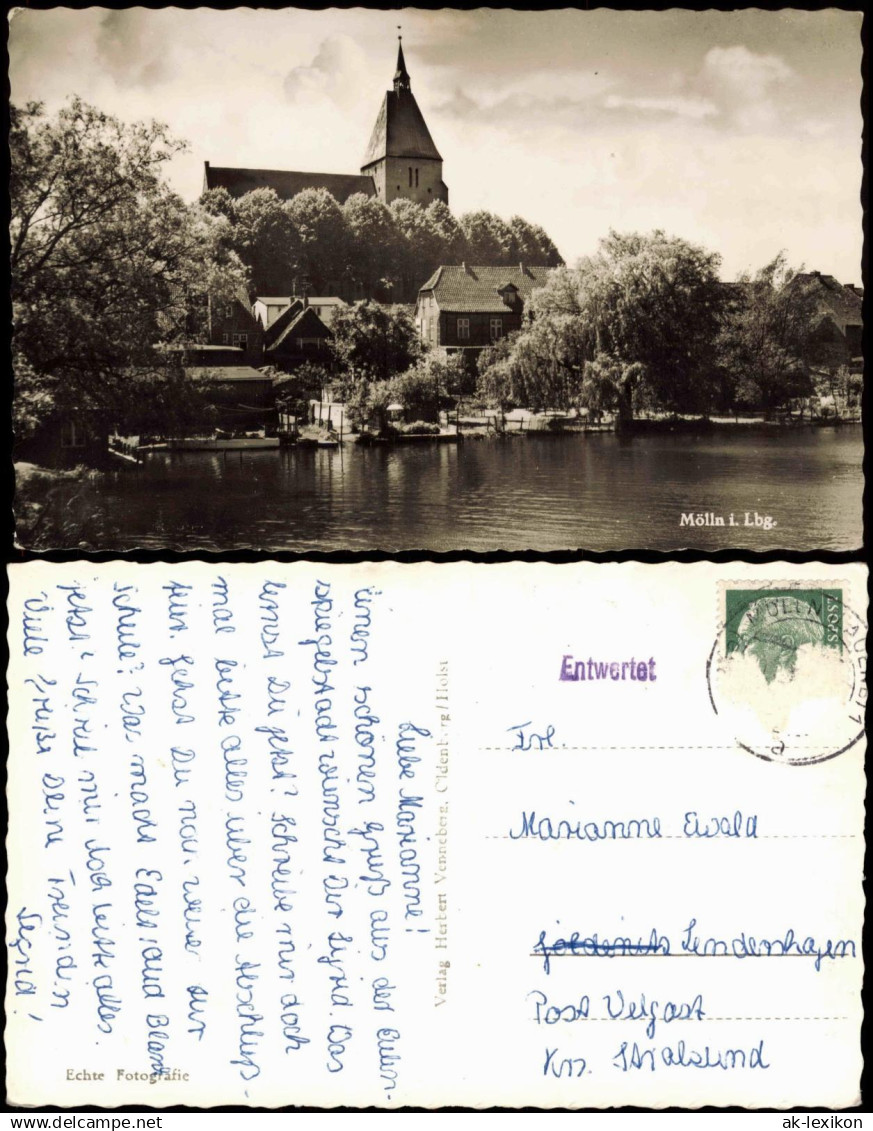 Mölln i. Lbg.
Liebe Marianne!
Einen schönen Gruß aus der Eulen-
spiegelstadt wünscht Dir Sigrid. Was
lernst Du jetzt? Schreibe mir doch
mal bitte alles über die Abschluß-
Gehst Du nun weiter zur
Schule? Was macht Edeltraud
jetzt? Schreib mir doch bitte alles.
Viele Grüße Deine Freundin
Verlag Herbert Venneberg, Oldenburg/Holst
Echte Fotografie
Entwertet
MÖLLN
Frl.
Marianne Ewald
Lendershagen
Post Velgast
Krs. Stralsund
ak-lexikon